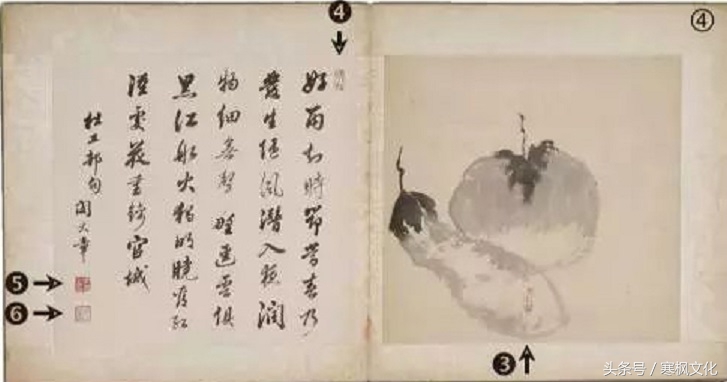 ④
❹
好雨知時節當春乃
發生隨風潛入夜潤
物細無聲野逕雲俱
黑江船火獨明曉看紅
溼處花重錦官城
杜工部句
❺
❻
❸
头条号／寒枫文化